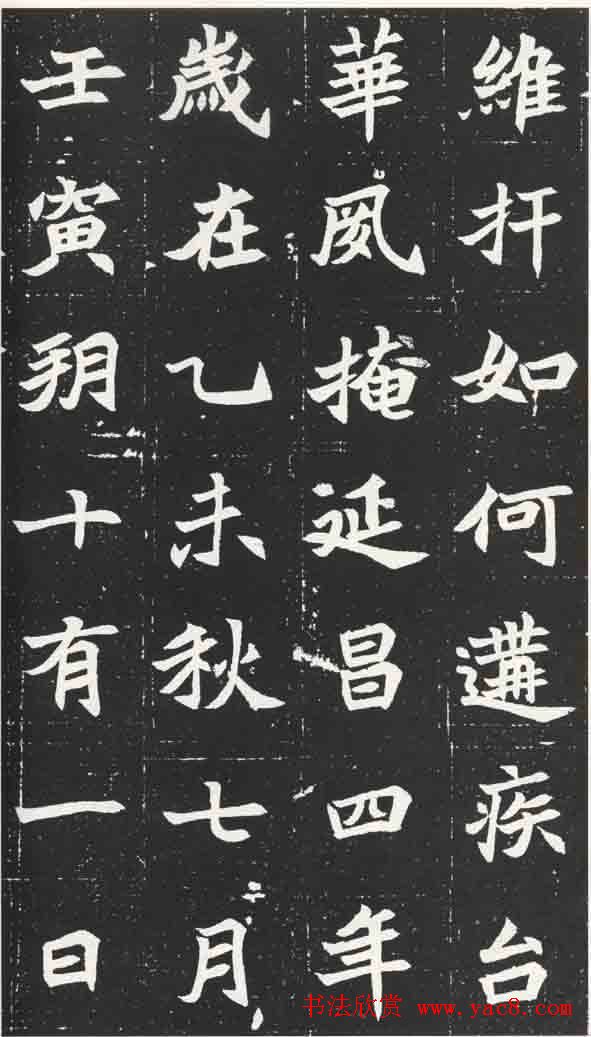 維扞如何遘疾台
華凮掩延昌四年
歲在乙未秋七月
壬寅朔十有一日
书法欣赏 www.yac8.com